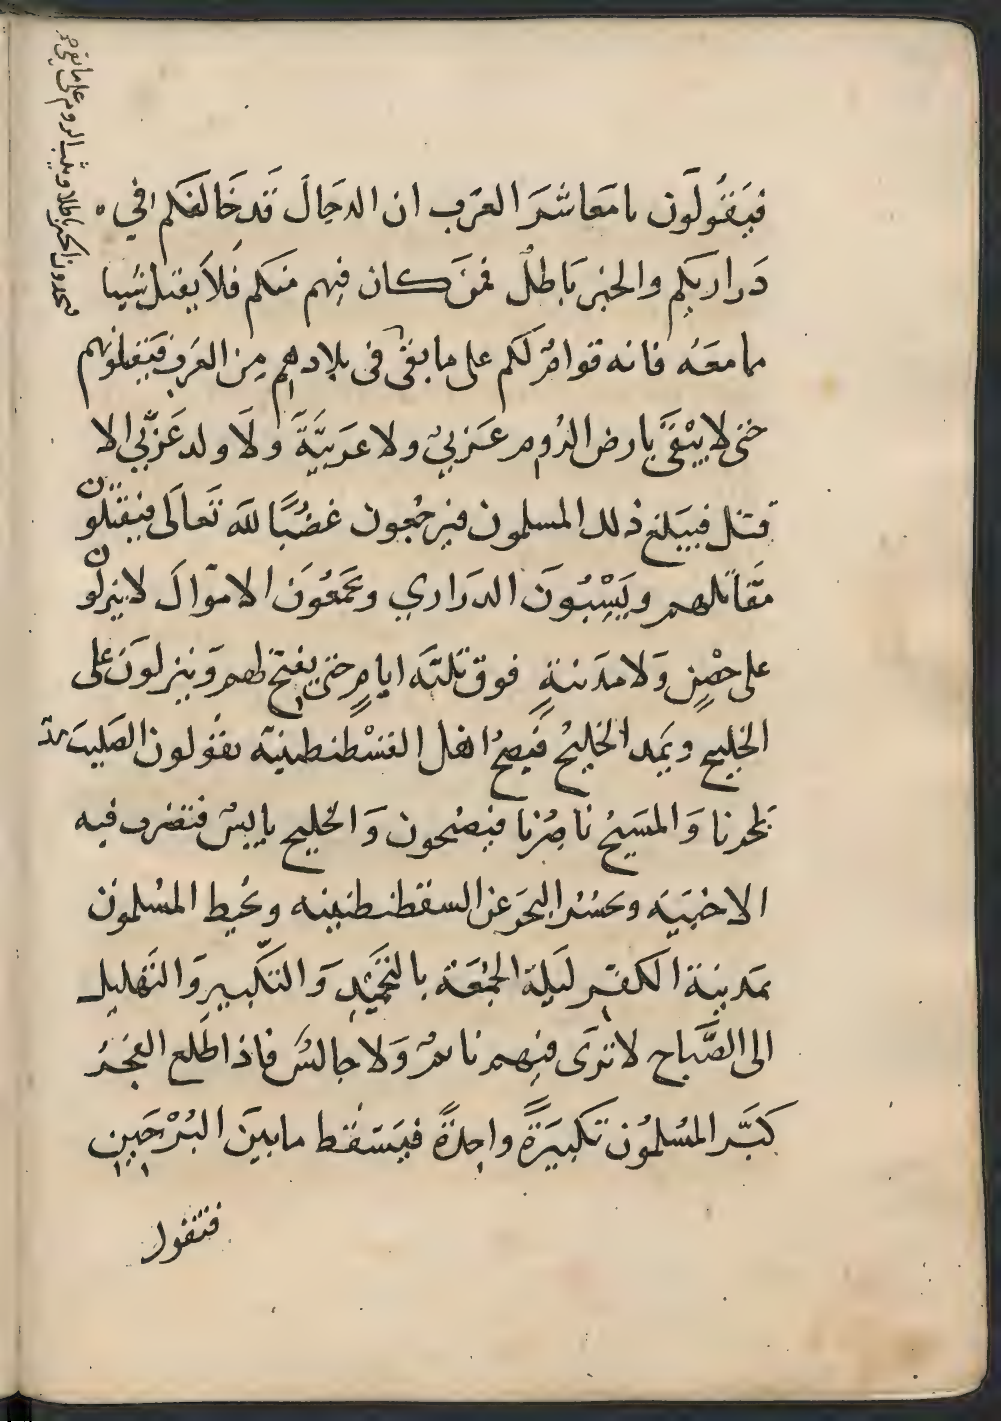 فيَقُولَون يا مَعَاشرَ العَرب ان الدجَالَ قَد خَالفَكم في
دَراريكم والخبر بَاطلٌ فمَن كان فيهم منكم فَلا يقتل شيا
مما معَه فانه قوامٌ لكم على ما بقى فى بلادهم مِن العَرب فيَقتلونهم
حتى لا يبْقَى بارض الروم عَربيٌ ولا عَربيَّة وَلاَ ولد عَربِّي الا
قتل فيَبلغ ذلك المسلمون فيرجُعون غضبًا لله تعالَى فيقتلون
مقَاتلهم ويَسْبُونَ الدرَاري ويجمَعُونَ الامَوالَ لا ينزلون
على حصْنٍ وَلا مدَينةٍ فوق ثلثَه ايامٍ حتى يفتح لهم وَينزلون على
الخليج ويَمِد الخَليجُ فَيصحُ اهل القسْطنطينية يقولون الصَليبَ مد
بحرنا وَالمسَيحُ ناصِرُنا فيصُحون وَالخليج يابسٌ فتضرب فيه
الاخبيَه ويحسُر البحَر عَن السقطنطينيه ويحُيط المسُلمون
بمَدينة الكفر لَيلة الجمُعَة بالتحَميدِ وَالتكبيرِ وَالتَهليل
الى الصَّبَاح لا ترَى فيهم نائمٌ وَلا جالسٌ فاذا طَلع الفجَر
كبَّر المسُلمُون تكبيرَةً واحدةً فيَسَقط ما بينَ البُرْجَين
فتقول